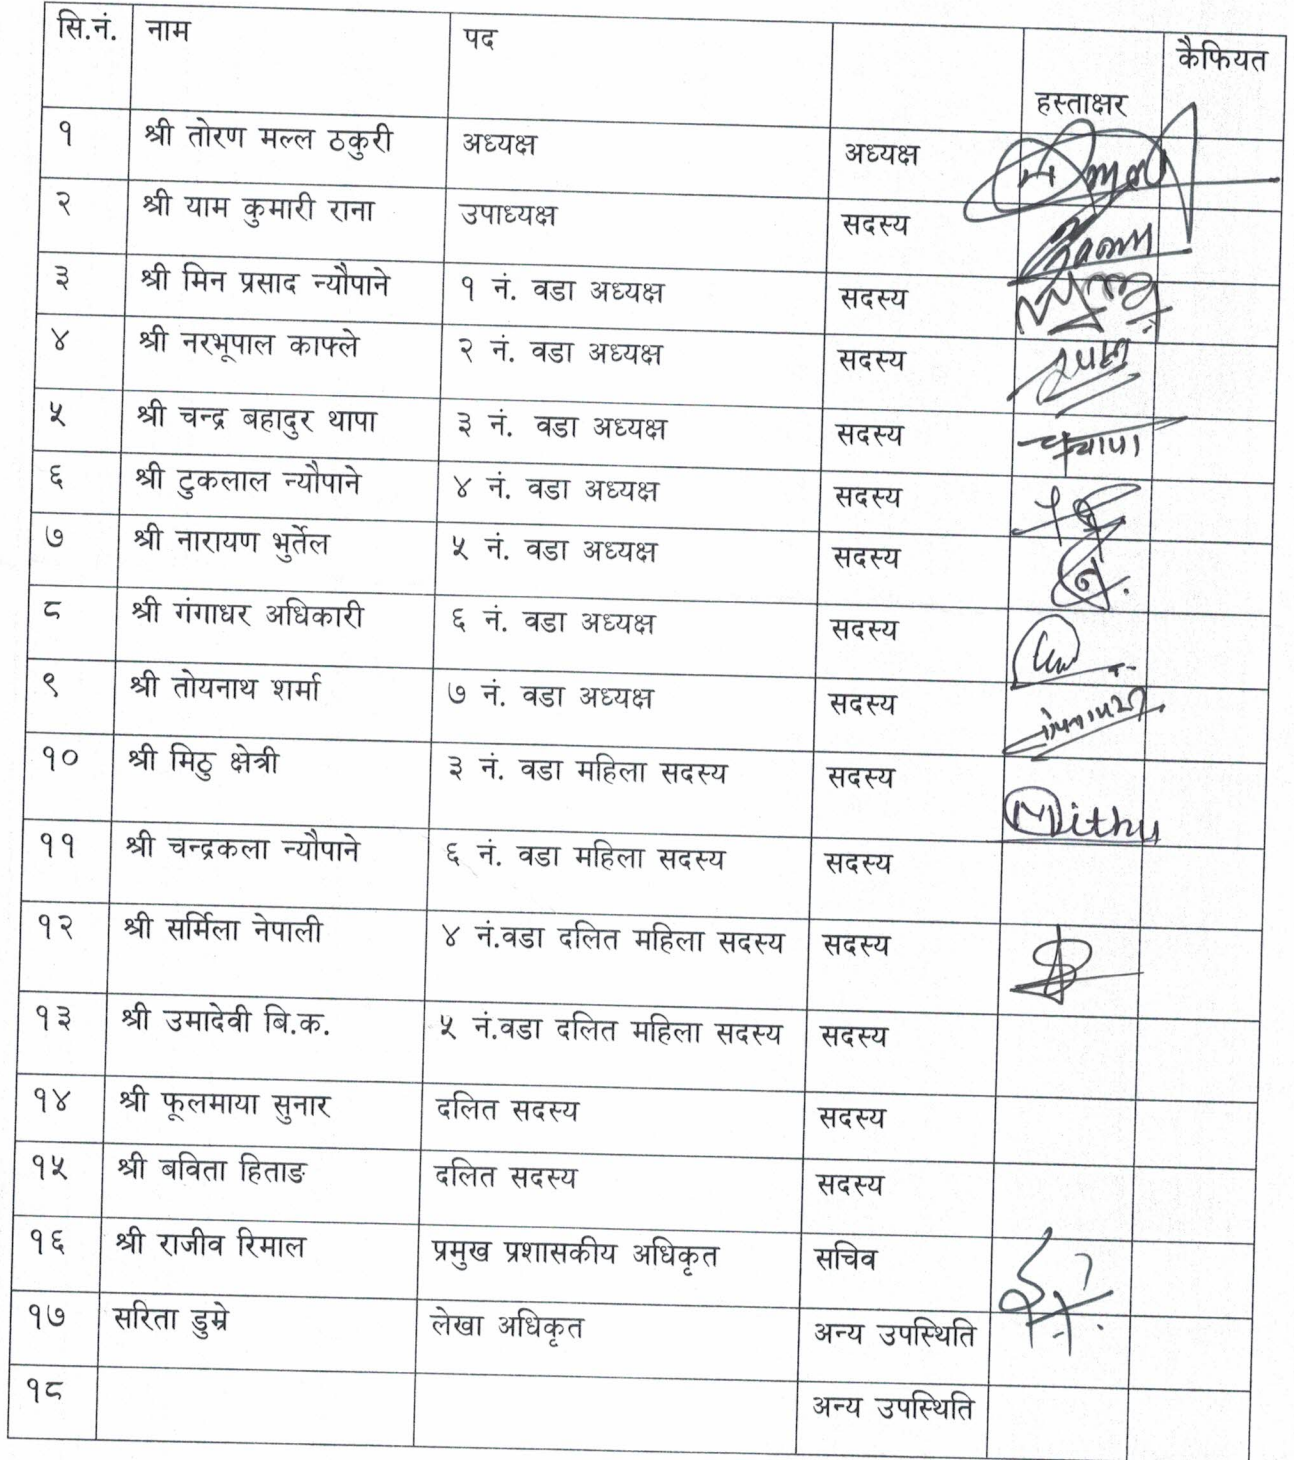 सि.नं. नाम पद हस्ताक्षर कैफियत
१ श्री तोरण मल्ल ठकुरी अध्यक्ष अध्यक्ष
२ श्री याम कुमारी राना उपाध्यक्ष सदस्य
३ श्री मिन प्रसाद न्यौपाने १ नं. वडा अध्यक्ष सदस्य
४ श्री नरभूपाल काफ्ले २ नं. वडा अध्यक्ष सदस्य
५ श्री चन्द्र बहादुर थापा ३ नं. वडा अध्यक्ष सदस्य
६ श्री टुकलाल न्यौपाने ४ नं. वडा अध्यक्ष सदस्य
७ श्री नारायण भुर्तेल ५ नं. वडा अध्यक्ष सदस्य
८ श्री गंगाधर अधिकारी ६ नं. वडा अध्यक्ष सदस्य
९ श्री तोयनाथ शर्मा ७ नं. वडा अध्यक्ष सदस्य
१० श्री मिठु क्षेत्री ३ नं. वडा महिला सदस्य सदस्य Mithu
११ श्री चन्द्रकला न्यौपाने ६ नं. वडा महिला सदस्य सदस्य
१२ श्री सर्मिला नेपाली ४ नं.वडा दलित महिला सदस्य सदस्य
१३ श्री उमादेवी बि.क. ५ नं.वडा दलित महिला सदस्य सदस्य
१४ श्री फूलमाया सुनार दलित सदस्य सदस्य
१५ श्री बविता हिताङ दलित सदस्य सदस्य
१६ श्री राजीव रिमाल प्रमुख प्रशासकीय अधिकृत सचिव
१७ सरिता डुम्रे लेखा अधिकृत अन्य उपस्थिति
१८ अन्य उपस्थिति